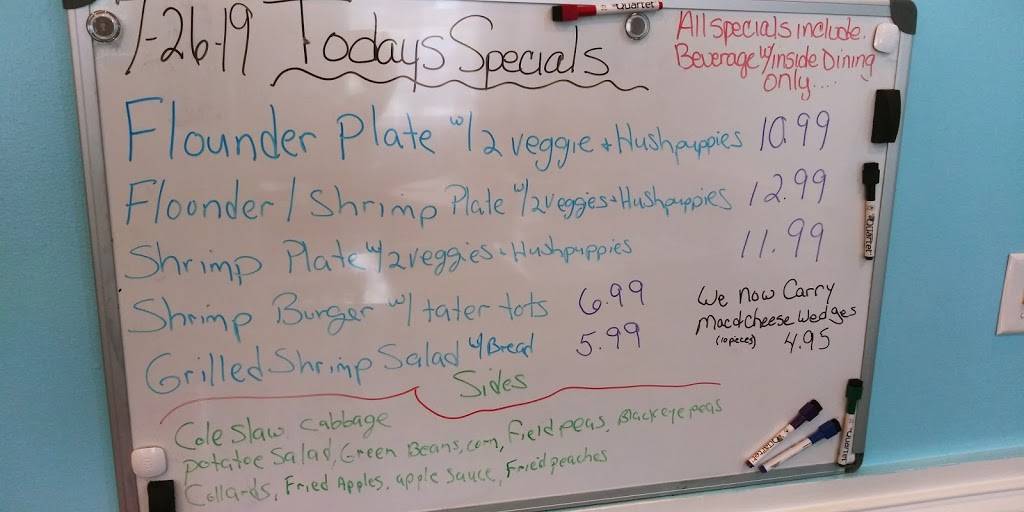 7-26-19 Todays Specials
All specials include
Beverage w/inside Dining
only....
Flounder Plate w/2 veggie + Hushpuppies 10.99
Floonder/Shrimp Plate w/2veggies+Hushpuppies 12.99
Shrimp Plate w/2veggies + Hushpuppies 11.99
Shrimp Burger w/tater tots 6.99
Grilled Shrimp Salad w/Bread 5.99
We now Carry
Mac&Cheese Wedges
(10pieces) 4.95
Sides
Cole Slaw Cabbage
potatoe Salad, Green Beans, corn, Field peas, Blackeye peas
Collards, Fried Apples, apple Sauce, Fried peaches
Quartet
Quartet
Quartet
Quartet